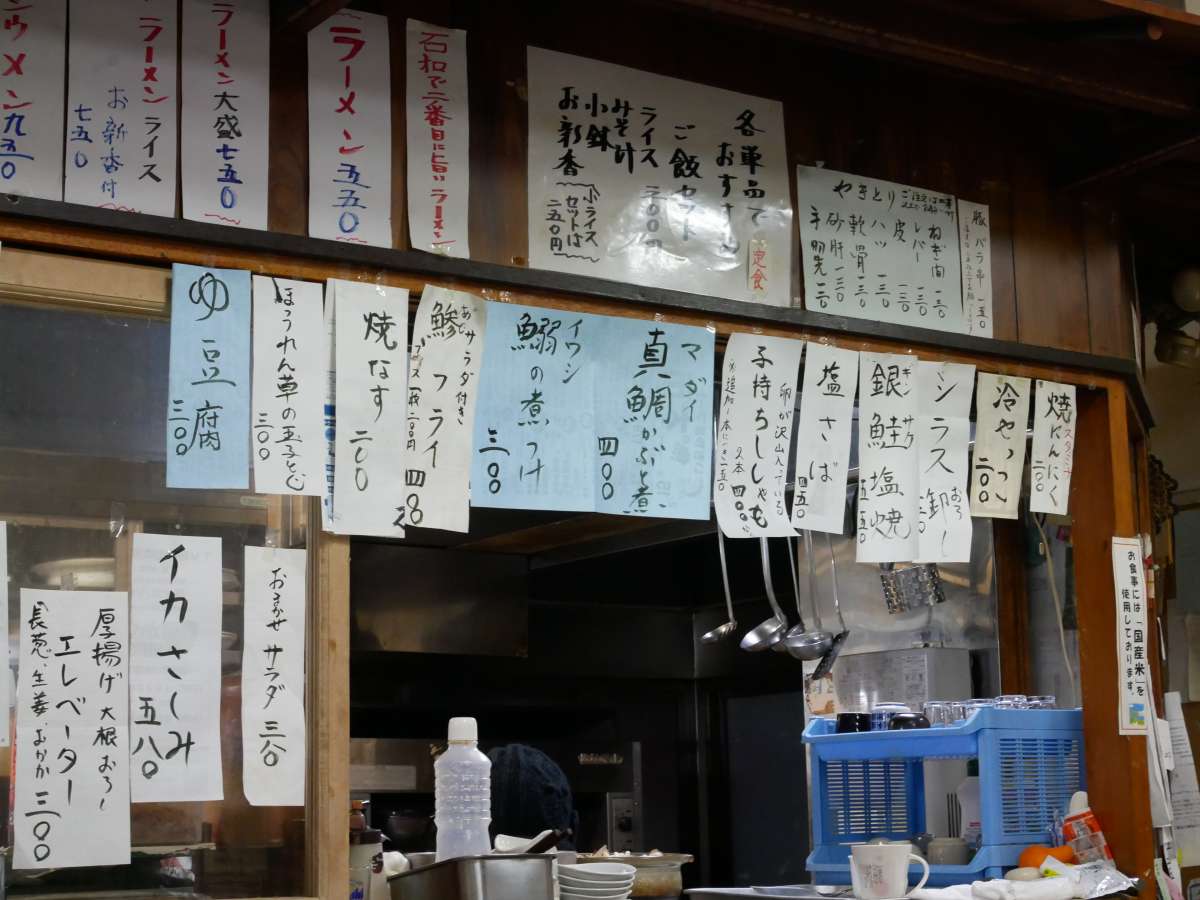 ラーメン 五五〇
石和で二番目に旨いラーメン
ラーメン大盛 七五〇
ラーメン ライス
お新香付
七五〇
メン 九五〇
各単品で
おすすめ
ご飯セット
ライス 二〇〇円
みそ汁
小鉢
お新香
小ライス
セットは
二五〇円
定食
豚バラ串 一五〇
やきとり
ねぎ肉 一三〇
レバー 一三〇
皮 一三〇
ハツ 一三〇
軟骨 一三〇
砂肝 一三〇
手羽先
焼にんにく
スタミナ
二〇〇
冷やっこ
二〇〇
シラス卸し
おろし
銀鮭塩焼
ぎんサケ
五五〇
塩さば
四五〇
卵が沢山入っている
子持ちししゃも
2本 四〇〇
※追加1本につき一五〇
マダイ
真鯛かぶと煮
四〇〇
イワシ
鰯の煮つけ
三〇〇
サラダ付き
あじ
鯵フライ
焼なす
二〇〇
ほうれん草の玉子とじ
三〇〇
ゆ豆腐
三〇〇
おまかせサラダ 三〇〇
イカさしみ
五八〇
厚揚げ 大根おろし
エレベーター
長葱、生姜、おかか 三〇〇
お食事には「国産米」を
使用しております。